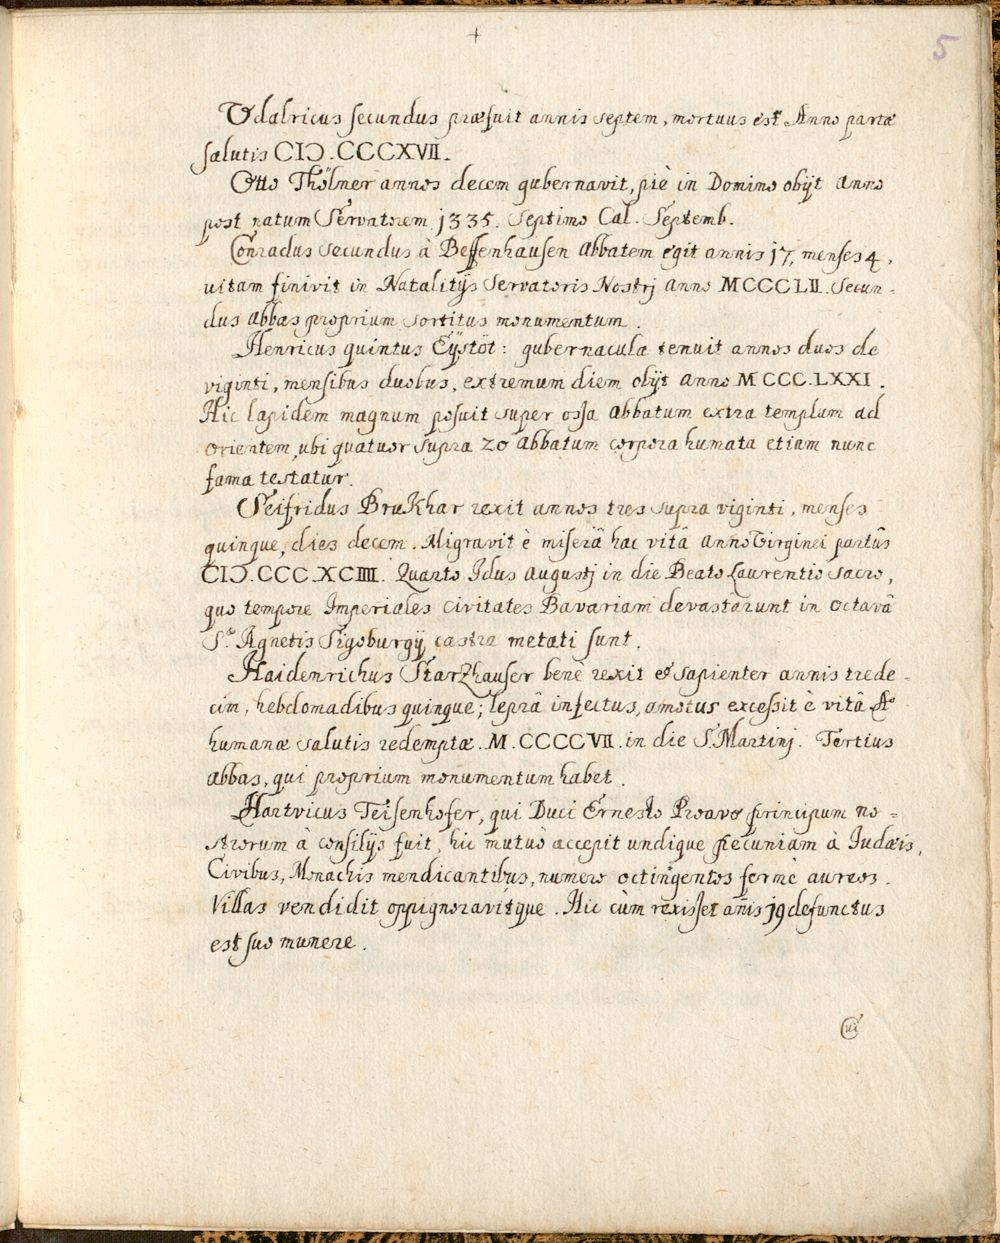 +
5
Udalricus secundus præfuit annis septem, mortuus est Anno partæ
salutis CIƆ.CCCXVII.
Otto Thölner annos decem gubernavit, piè in Domino obijt Anno
post natum Servatorem 1335. Septimo Cal. Septemb.
Conradus secundus à Beffenhausen Abbatem egit annis 17, menses 4,
vitam finivit in Natalitijs Servatoris Nostrj Anno MCCCLII. Secun-
dus Abbas proprium sortitus monumentum.
Henricus quintus Eÿstöt: gubernacula tenuit annos duos de
viginti, mensibus duobus, extremum diem obijt Anno MCCC.LXXI.
Hic lapidem magnum posuit super ossa Abbatum extra templum ad
orientem, ubi quatuor supra 20 Abbatum corpora humata etiam nunc
fama testatur.
Seifridus BruKhar rexit annos tres supra viginti, menses
quinque, dies decem. Migravit è miserâ hac vitâ Anno Virginei partûs
CIƆ.CCC.XCIIII. Quarto Idus Augustj in die Beato Laurentio sacro,
quo tempore Imperiales Civitates Bavariam devastârunt in octavâ
S.ᵃᵉ Agnetis Sigoburgij castra metati sunt.
Haidenrichus StarZhauser benè rexit et sapienter annis trede-
cim, hebdomadibus quinque; leprâ infectus, amotus excessit è vitâ Aº
humanæ salutis redemptæ. M.CCCCVII. in die S. Martinj. Tertius
Abbas, qui proprium monumentum habet.
Hartvicus Teisenhofer, qui Duci Ernesto Proavo principum no=
strorum à consilijs fuit, hic mutuò accepit undique pecuniam à Judæis,
Civibus, Monachis mendicantibus, numero octingentos fermè aureos.
Villas vendidit oppignoravitque. Hic cùm rexisset añis 19 defunctus
est suo munere.
Cui